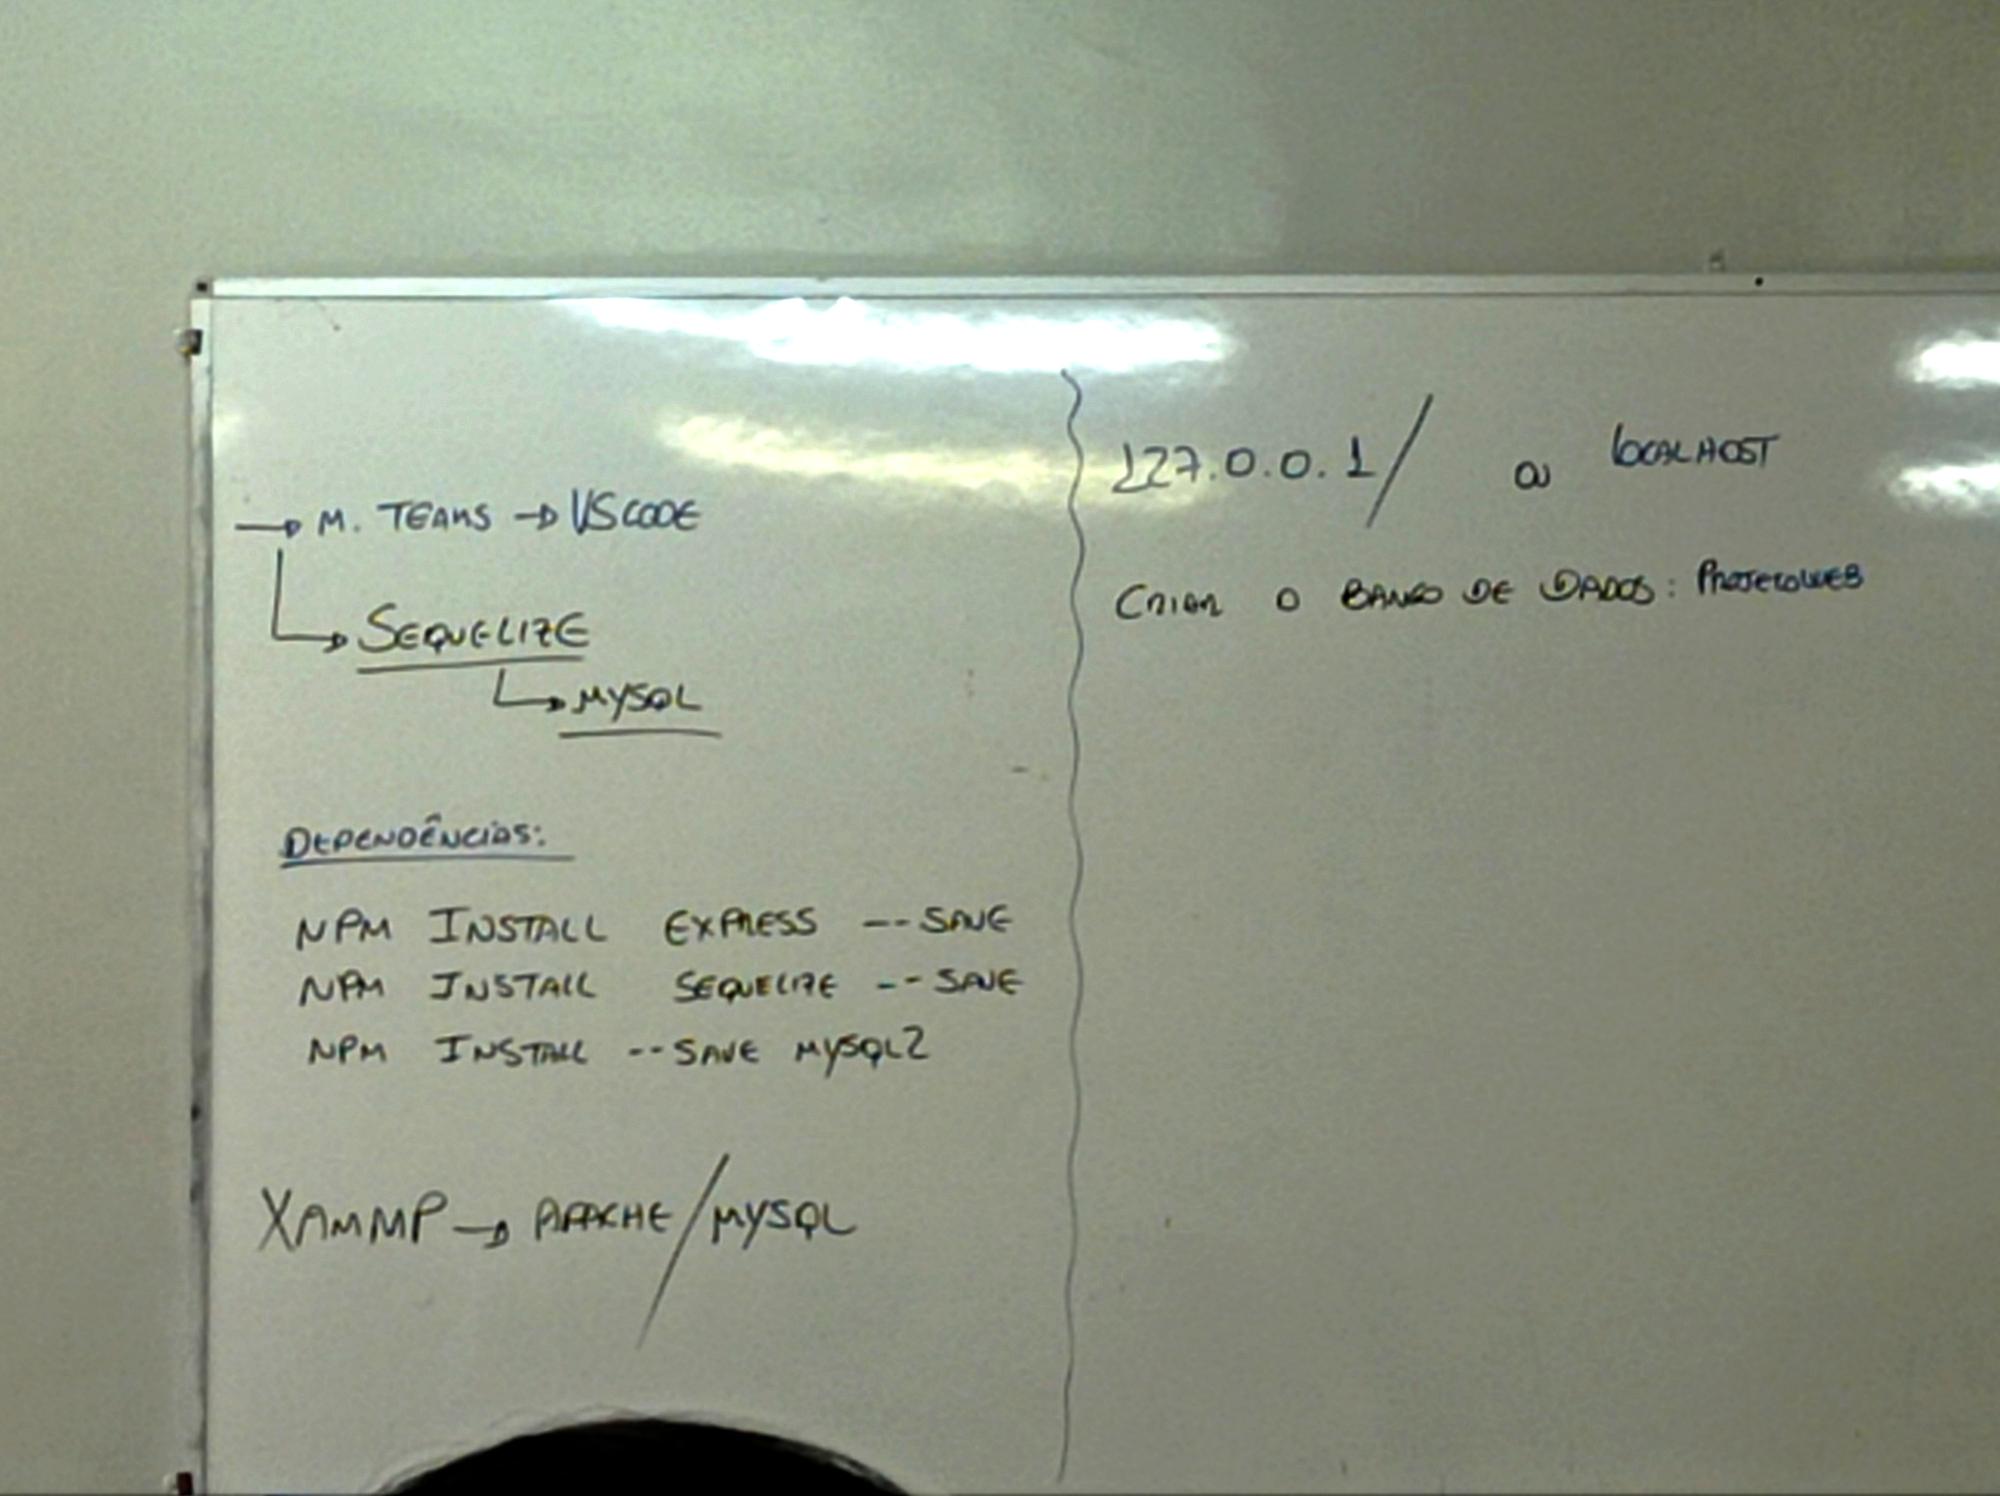 → M. TEAMS → VSCODE
→ SEQUELIZE
→ MYSQL
DEPENDÊNCIAS:
NPM INSTALL EXPRESS --SAVE
NPM INSTALL SEQUELIZE --SAVE
NPM INSTALL --SAVE MYSQL2
XAMMP → APACHE/MYSQL
127.0.0.1/ OU LOCALHOST
CRIAR O BANCO DE DADOS: PROJETOWEB